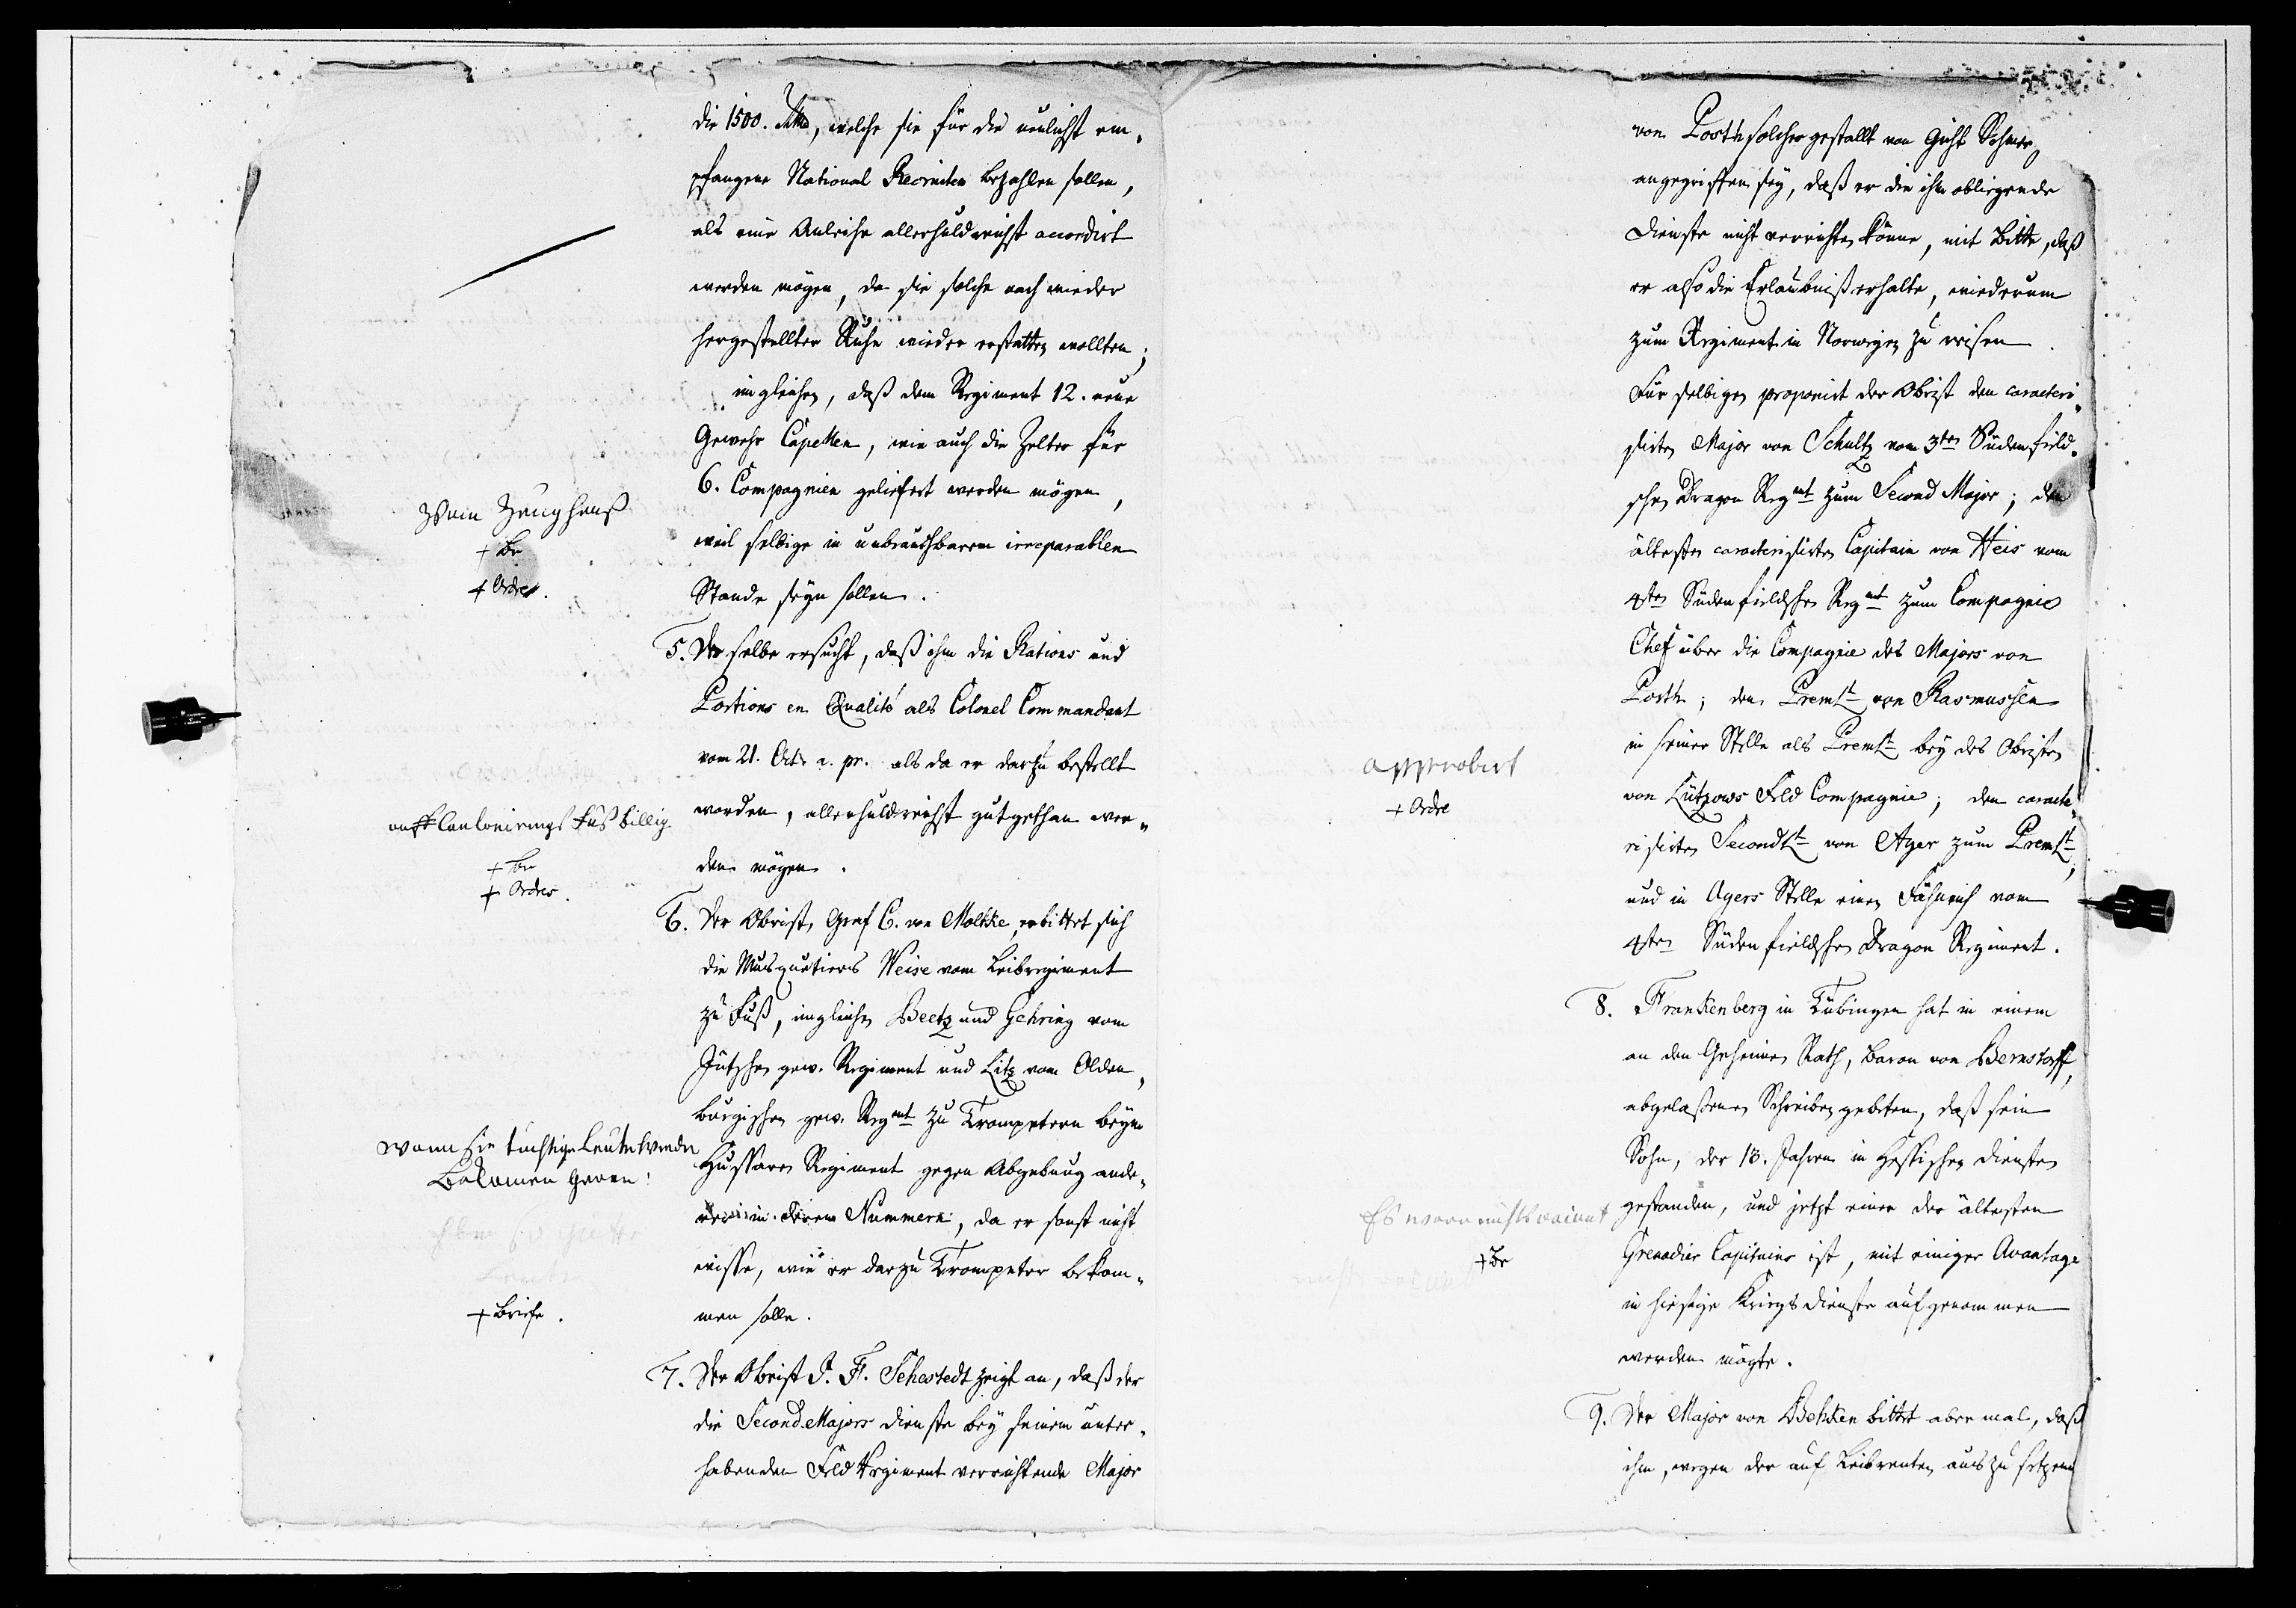 die 1500. Rthlr, welche sie für die neulichst em-
pfangene National Recruiten bezahlen sollen,
als eine Anleihe allerhuldreichst accordirt
werden mögen, da sie solche nach wieder
hergestellter Ruhe wieder erstatten wollten;
imgleichen, daß dem Regiment 12. neue
Gewehr Capellen, wie auch die Zelter für
6. Compagnien geliefert werden mögen,
weil selbige in unbrauchbarem irreparablen
Stande seyn sollen.
Vom Zeughauß
+ Br
+ Ordre.
5. Derselbe ersucht, daß ihm die Rations und
Portions en Qualité als Colonel Commandant
vom 21. Octr a. pr. als da er darzu bestellt
worden, allerhuldreichst gutgethan wer-
den mögen.
auff Cantonirungs Fuß billig
+ Br
+ Ordres.
6. Der Obrist, Graf C. von Moltke, erbittet sich
die Musquetiers Weise vom Leibregiment
zu Fuß, imgleichen Beetz und Gehring vom
Jütschen gew. Regiment und Litz vom Olden-
burgischen gew. Regmt zu Trompetern beym
Husaren Regiment gegen Abgebung ande-
rer in deren Nummern, da er sonst nicht
wisse, wie er darzu Trompeter bekom-
men solle.
Wann Sie tüchtige Leute wieder
Bekomen
+ Briefe.
7. Der Obrist J. F. Sehestedt zeigt an, daß der
die Second-Majors Dienste bey seinem unter-
habenden Feld Regiment verrichtende Major
von Posth solchergestallt von Gicht Schmerz
angegriffen sey, daß er die ihm obliegende
Dienste nicht verrichten könne, mit Bitte, daß
er also die Erlaubniß erhalte, wiederum
zum Regiment in Norwegen zu reisen.
Für selbigen proponirt der Obrist den caracteri-
sirten Major von Schultz vom 3ten Südenfield-
schen Dragon Regmt zum Second Major; den
ältesten caracterisirten Capitain von Heis vom
4ten Südenfieldschen Regmt zum Compagnie
Chef über die Compagnie des Majors von
Posth; den Premlt von Rasmussen
in seiner Stelle als Premlt bey des Obristen
von Lützows Feld Compagnie; den caracte-
risirten Secondlt von Ager zum Premlt,
und in Agers Stelle einen Fähnrich vom
4ten Südenfieldschen Dragon Regiment.
approbirt
+ Ordre
8. Frankenberg in Tübingen hat in einem
an den Geheimen Rath, Baron von Bernstorff,
abgelaßenen Schreiben gebeten, daß sein
Sohn, der 13. Jahren in Hessischen Diensten
gestanden, und jetzt einer der ältesten
Grenadier Capitains ist, mit einiger Avantage
in hiesige Kriegs Dienste aufgenommen
werden mögte.
Es nichts vacant
+ Br
9. Der Major von Behken bittet abermal, daß
ihm, wegen der auf Leibrenten auszusetzen